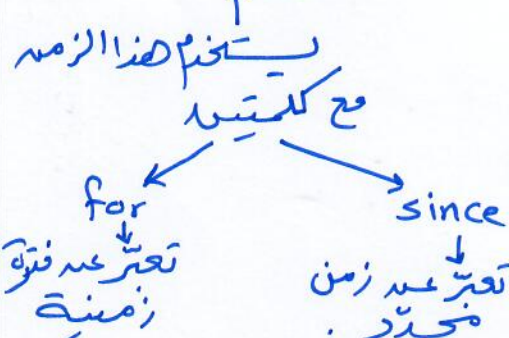 يستخدم هذا الزمن
مع كلمتين
for
since
تعبّر عن فترة
زمنية
تعبّر عن زمن
محدّد.